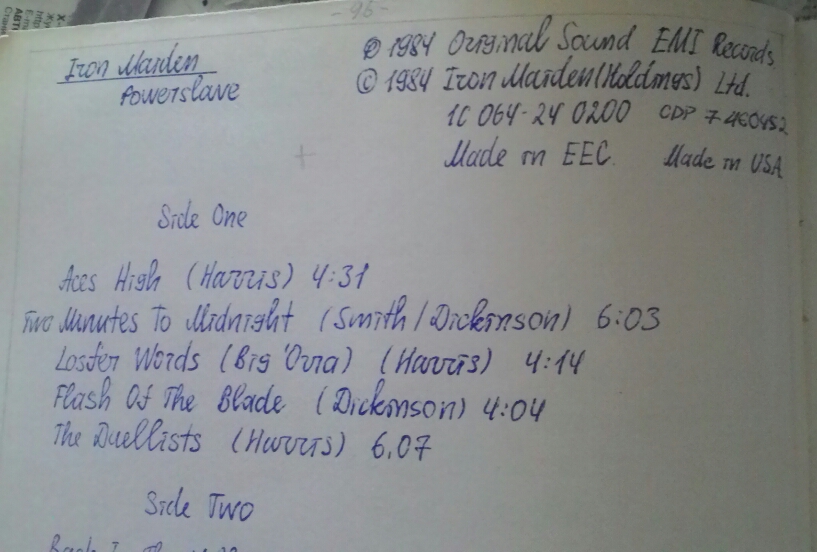 - 95 -
Iron Maiden
Powerslave
℗ 1984 Original Sound EMI Records
© 1984 Iron Maiden (Holdings) Ltd.
1C 064-24 0200 CDP 7 460452
Made in EEC. Made in USA
Side One
Aces High (Harris) 4:31
Two Minutes To Midnight (Smith / Dickinson) 6:03
Losfer Words (Big 'Orra) (Harris) 4:14
Flash Of The Blade (Dickinson) 4:04
The Duellists (Harris) 6.07
Side Two